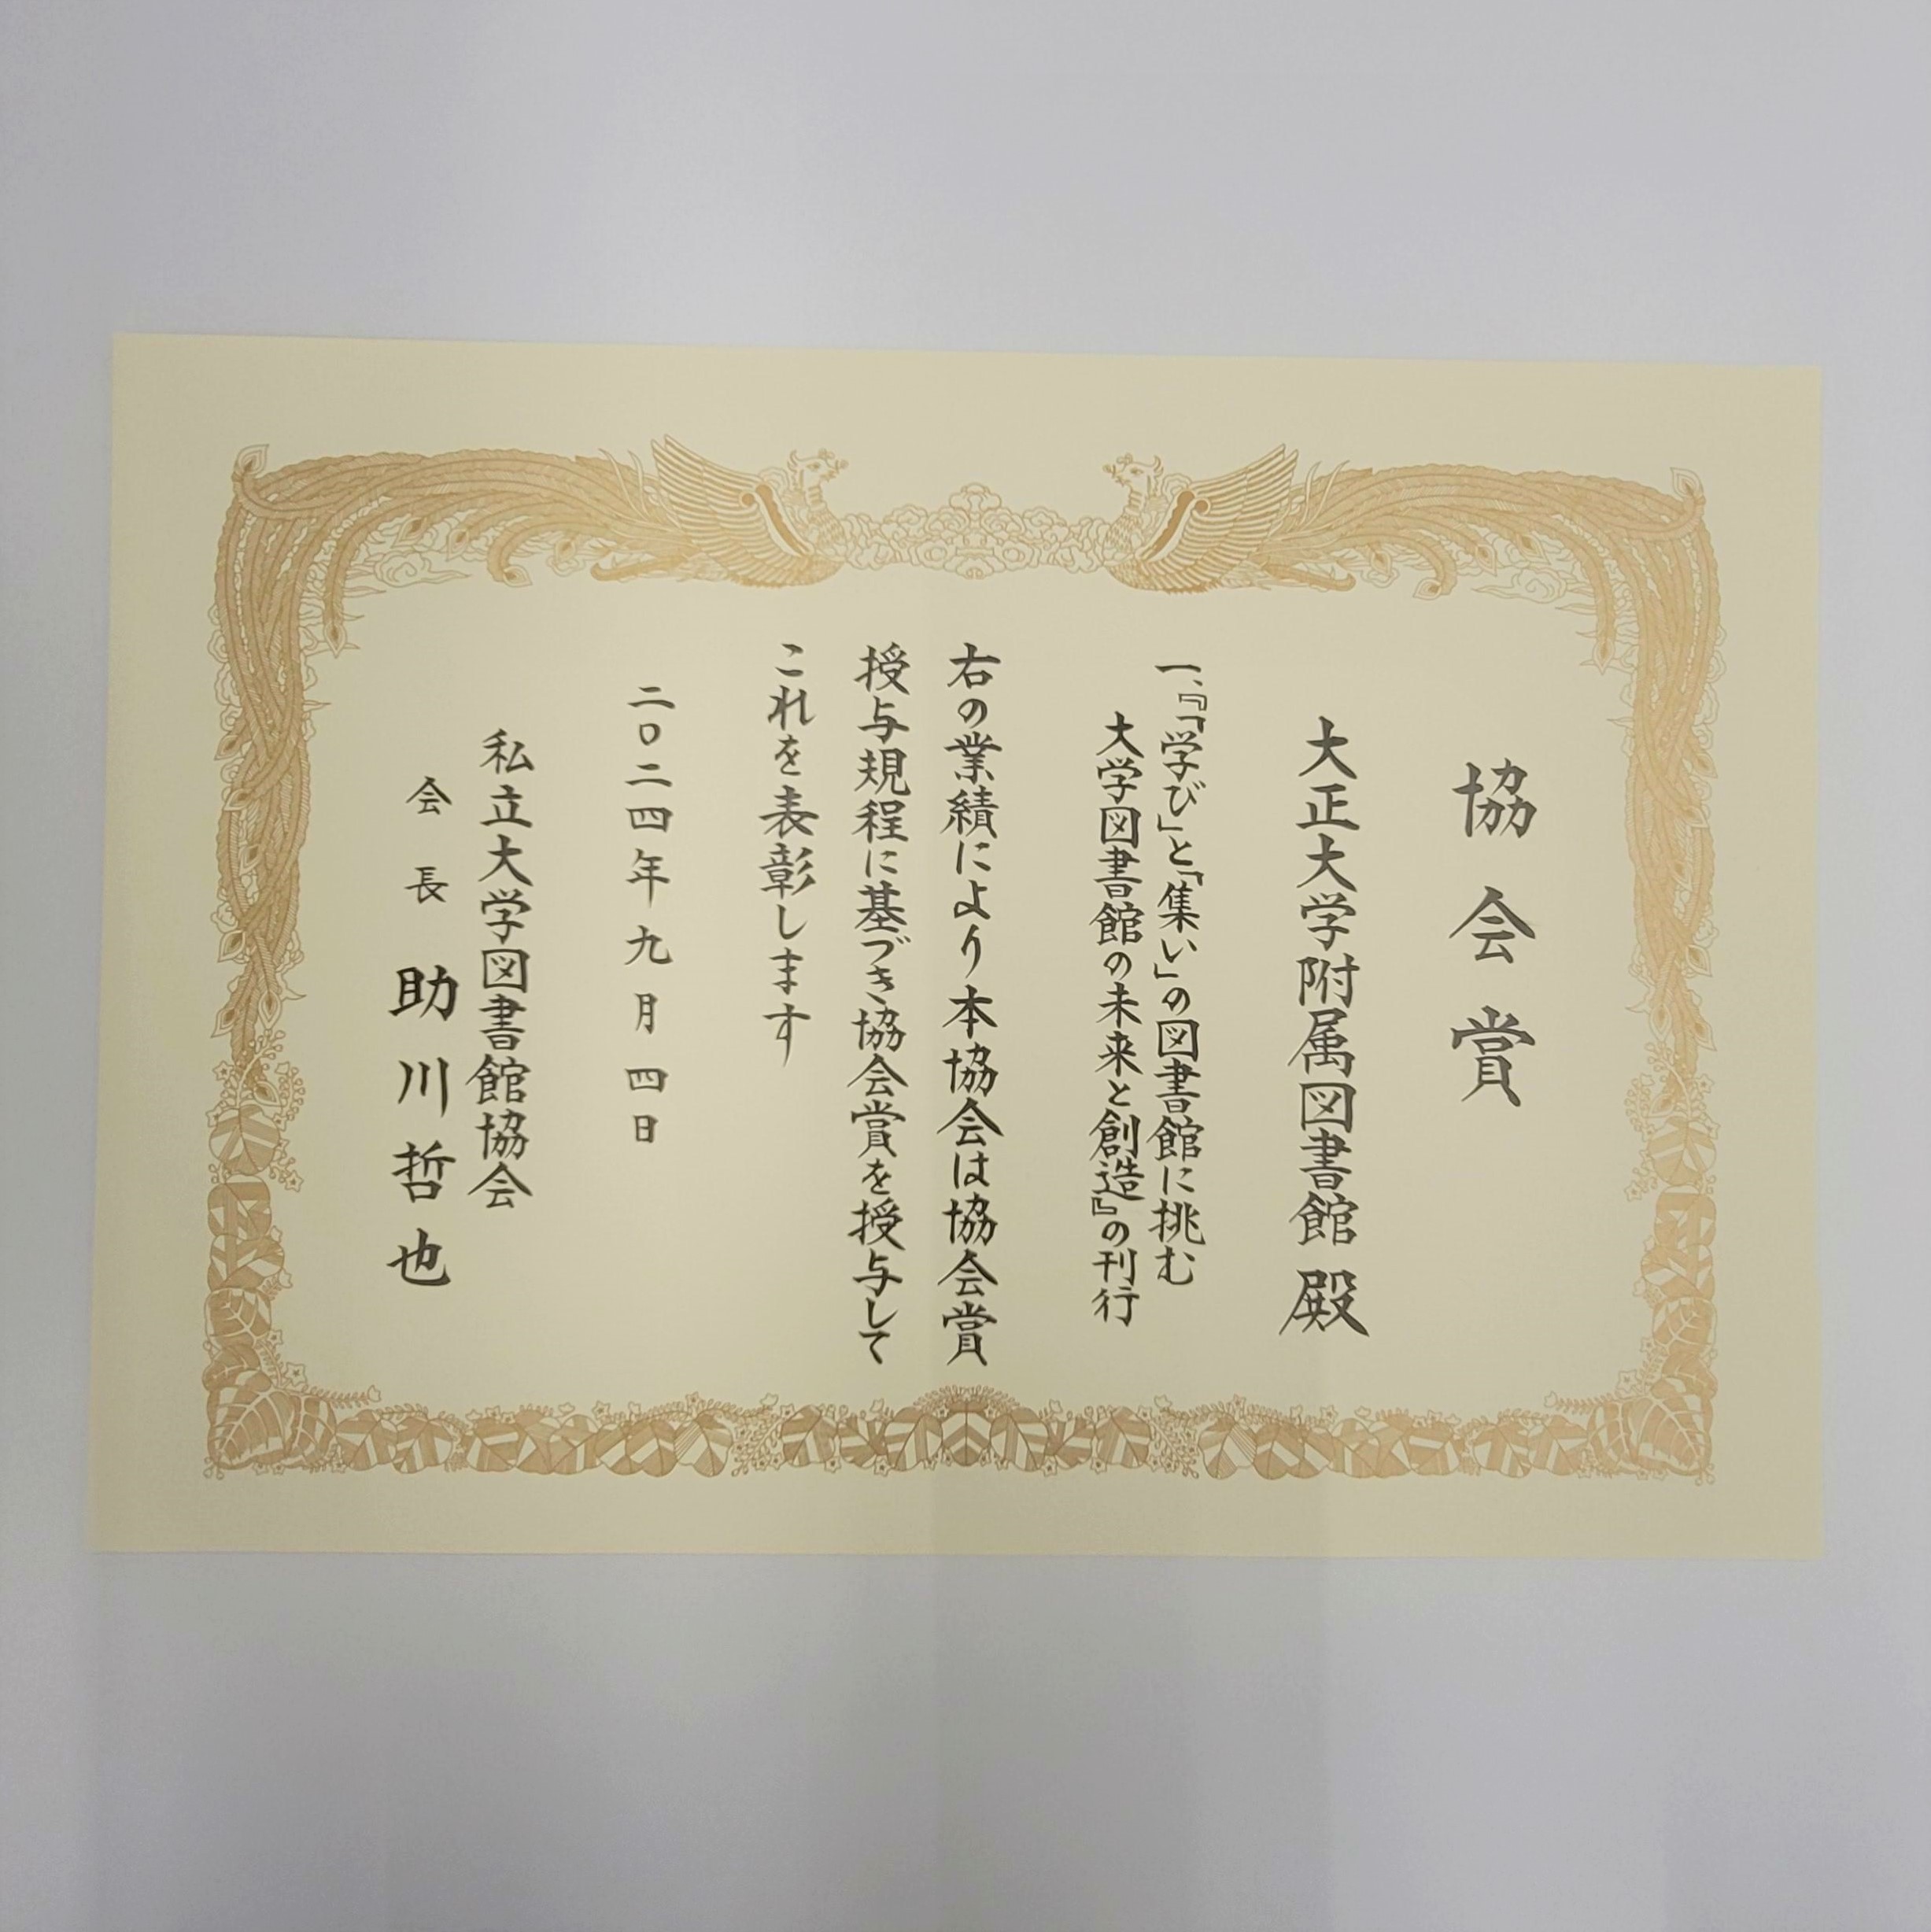 協会賞
大正大学附属図書館 殿
一、『「学び」と「集い」の図書館に挑む
大学図書館の未来と創造』の刊行
右の業績により本協会は協会賞
授与規程に基づき協会賞を授与して
これを表彰します
二〇二四年九月四日
私立大学図書館協会
会長 助川哲也